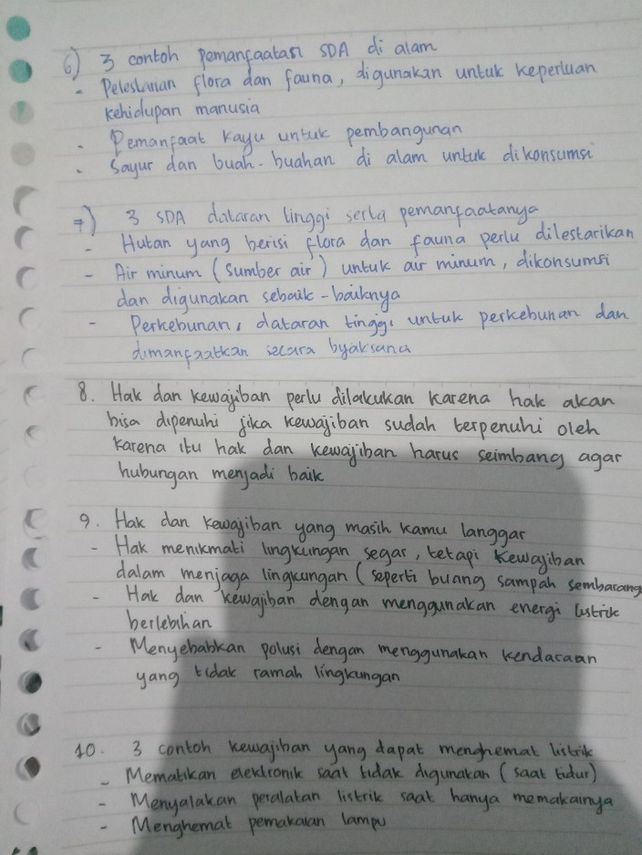 6) 3 contoh pemanfaatan SDA di alam
- Pelestarian flora dan fauna, digunakan untuk keperluan
kehidupan manusia
- Pemanfaat kayu untuk pembangunan
- Sayur dan buah-buahan di alam untuk dikonsumsi
7) 3 SDA dataran tinggi serta pemanfaatanya
- Hutan yang berisi flora dan fauna perlu dilestarikan
- Air minum (sumber air) untuk air minum, dikonsumsi
dan digunakan sebaik-baiknya
- Perkebunan, dataran tinggi untuk perkebunan dan
dimanfaatkan secara byaksana
8. Hak dan kewajiban perlu dilakukan karena hak akan
bisa dipenuhi jika kewajiban sudah terpenuhi oleh
karena itu hak dan kewajiban harus seimbang agar
hubungan menjadi baik
9. Hak dan kewajiban yang masih kamu langgar
- Hak menikmati lingkungan segar, tetapi kewajiban
dalam menjaga lingkungan (seperti buang sampah sembarang
- Hak dan kewajiban dengan menggunakan energi listrik
berlebihan
- Menyebabkan polusi dengan menggunakan kendaraan
yang tidak ramah lingkungan
10. 3 contoh kewajiban yang dapat menghemat listrik
- Mematikan elektronik saat tidak digunakan (saat tidur)
- Menyalakan peralatan listrik saat hanya memakainya
- Menghemat pemakaian lampu